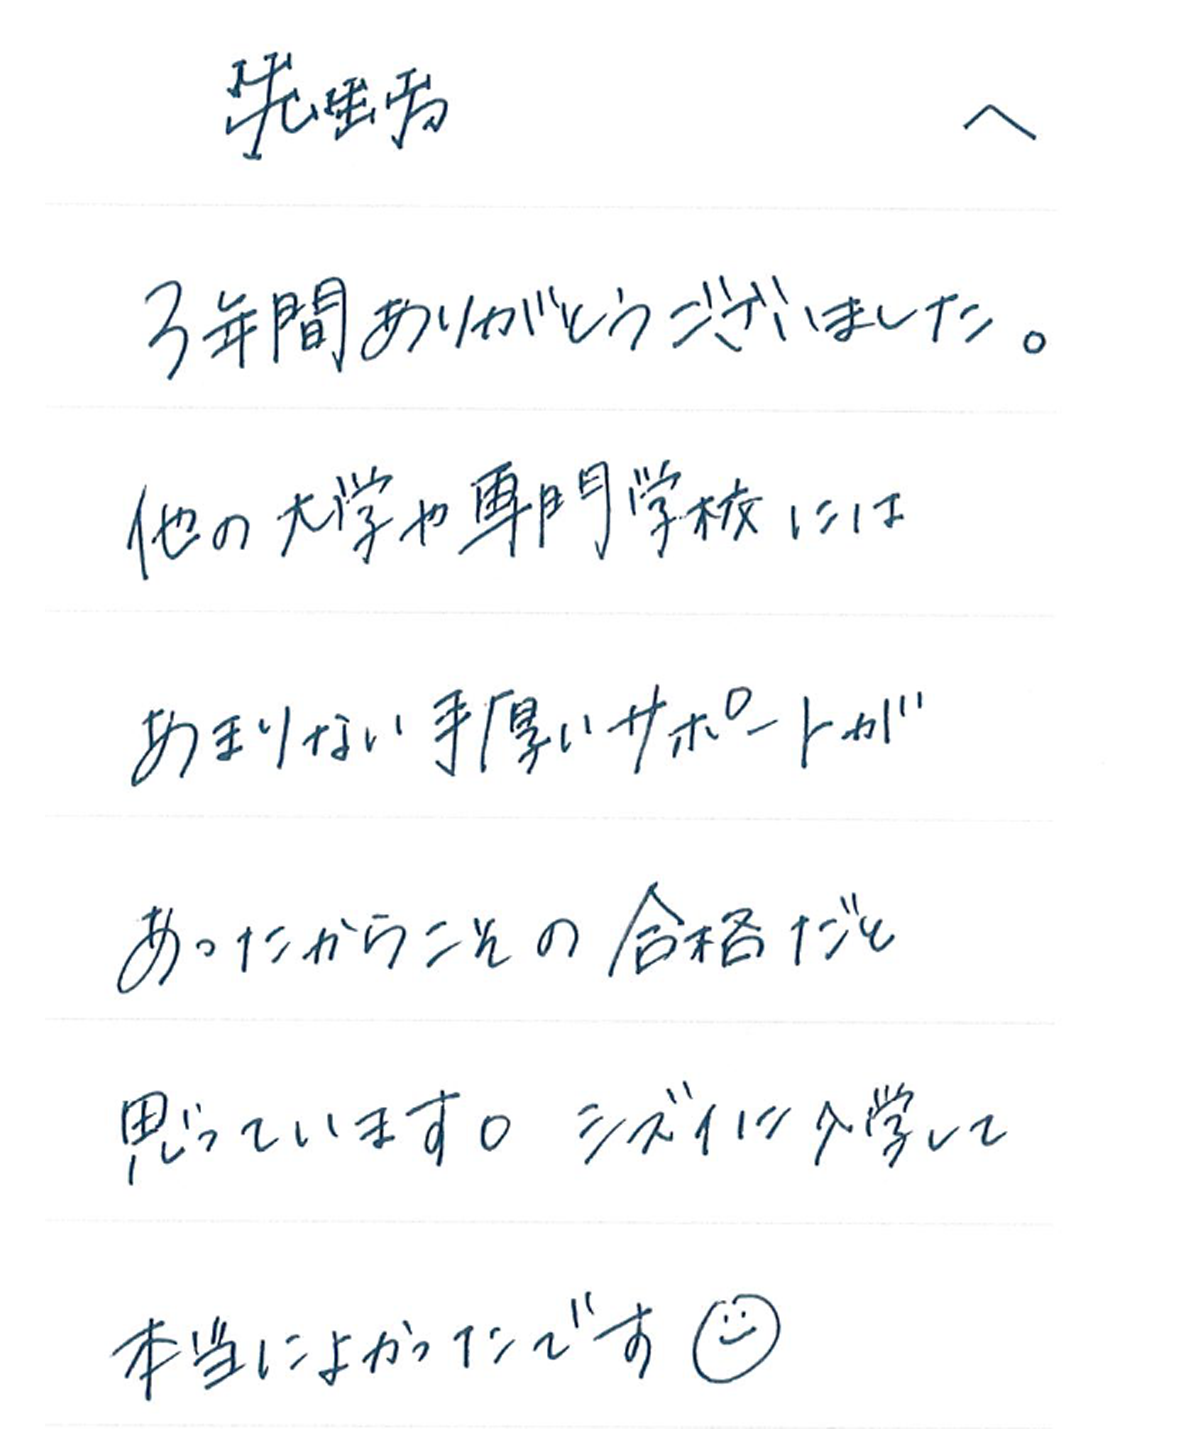 先生方 へ
3年間ありがとうございました。
他の大学や専門学校には
あまりない手厚いサポートが
あったからこその合格だと
思っています。シズイに入学して
本当によかったです